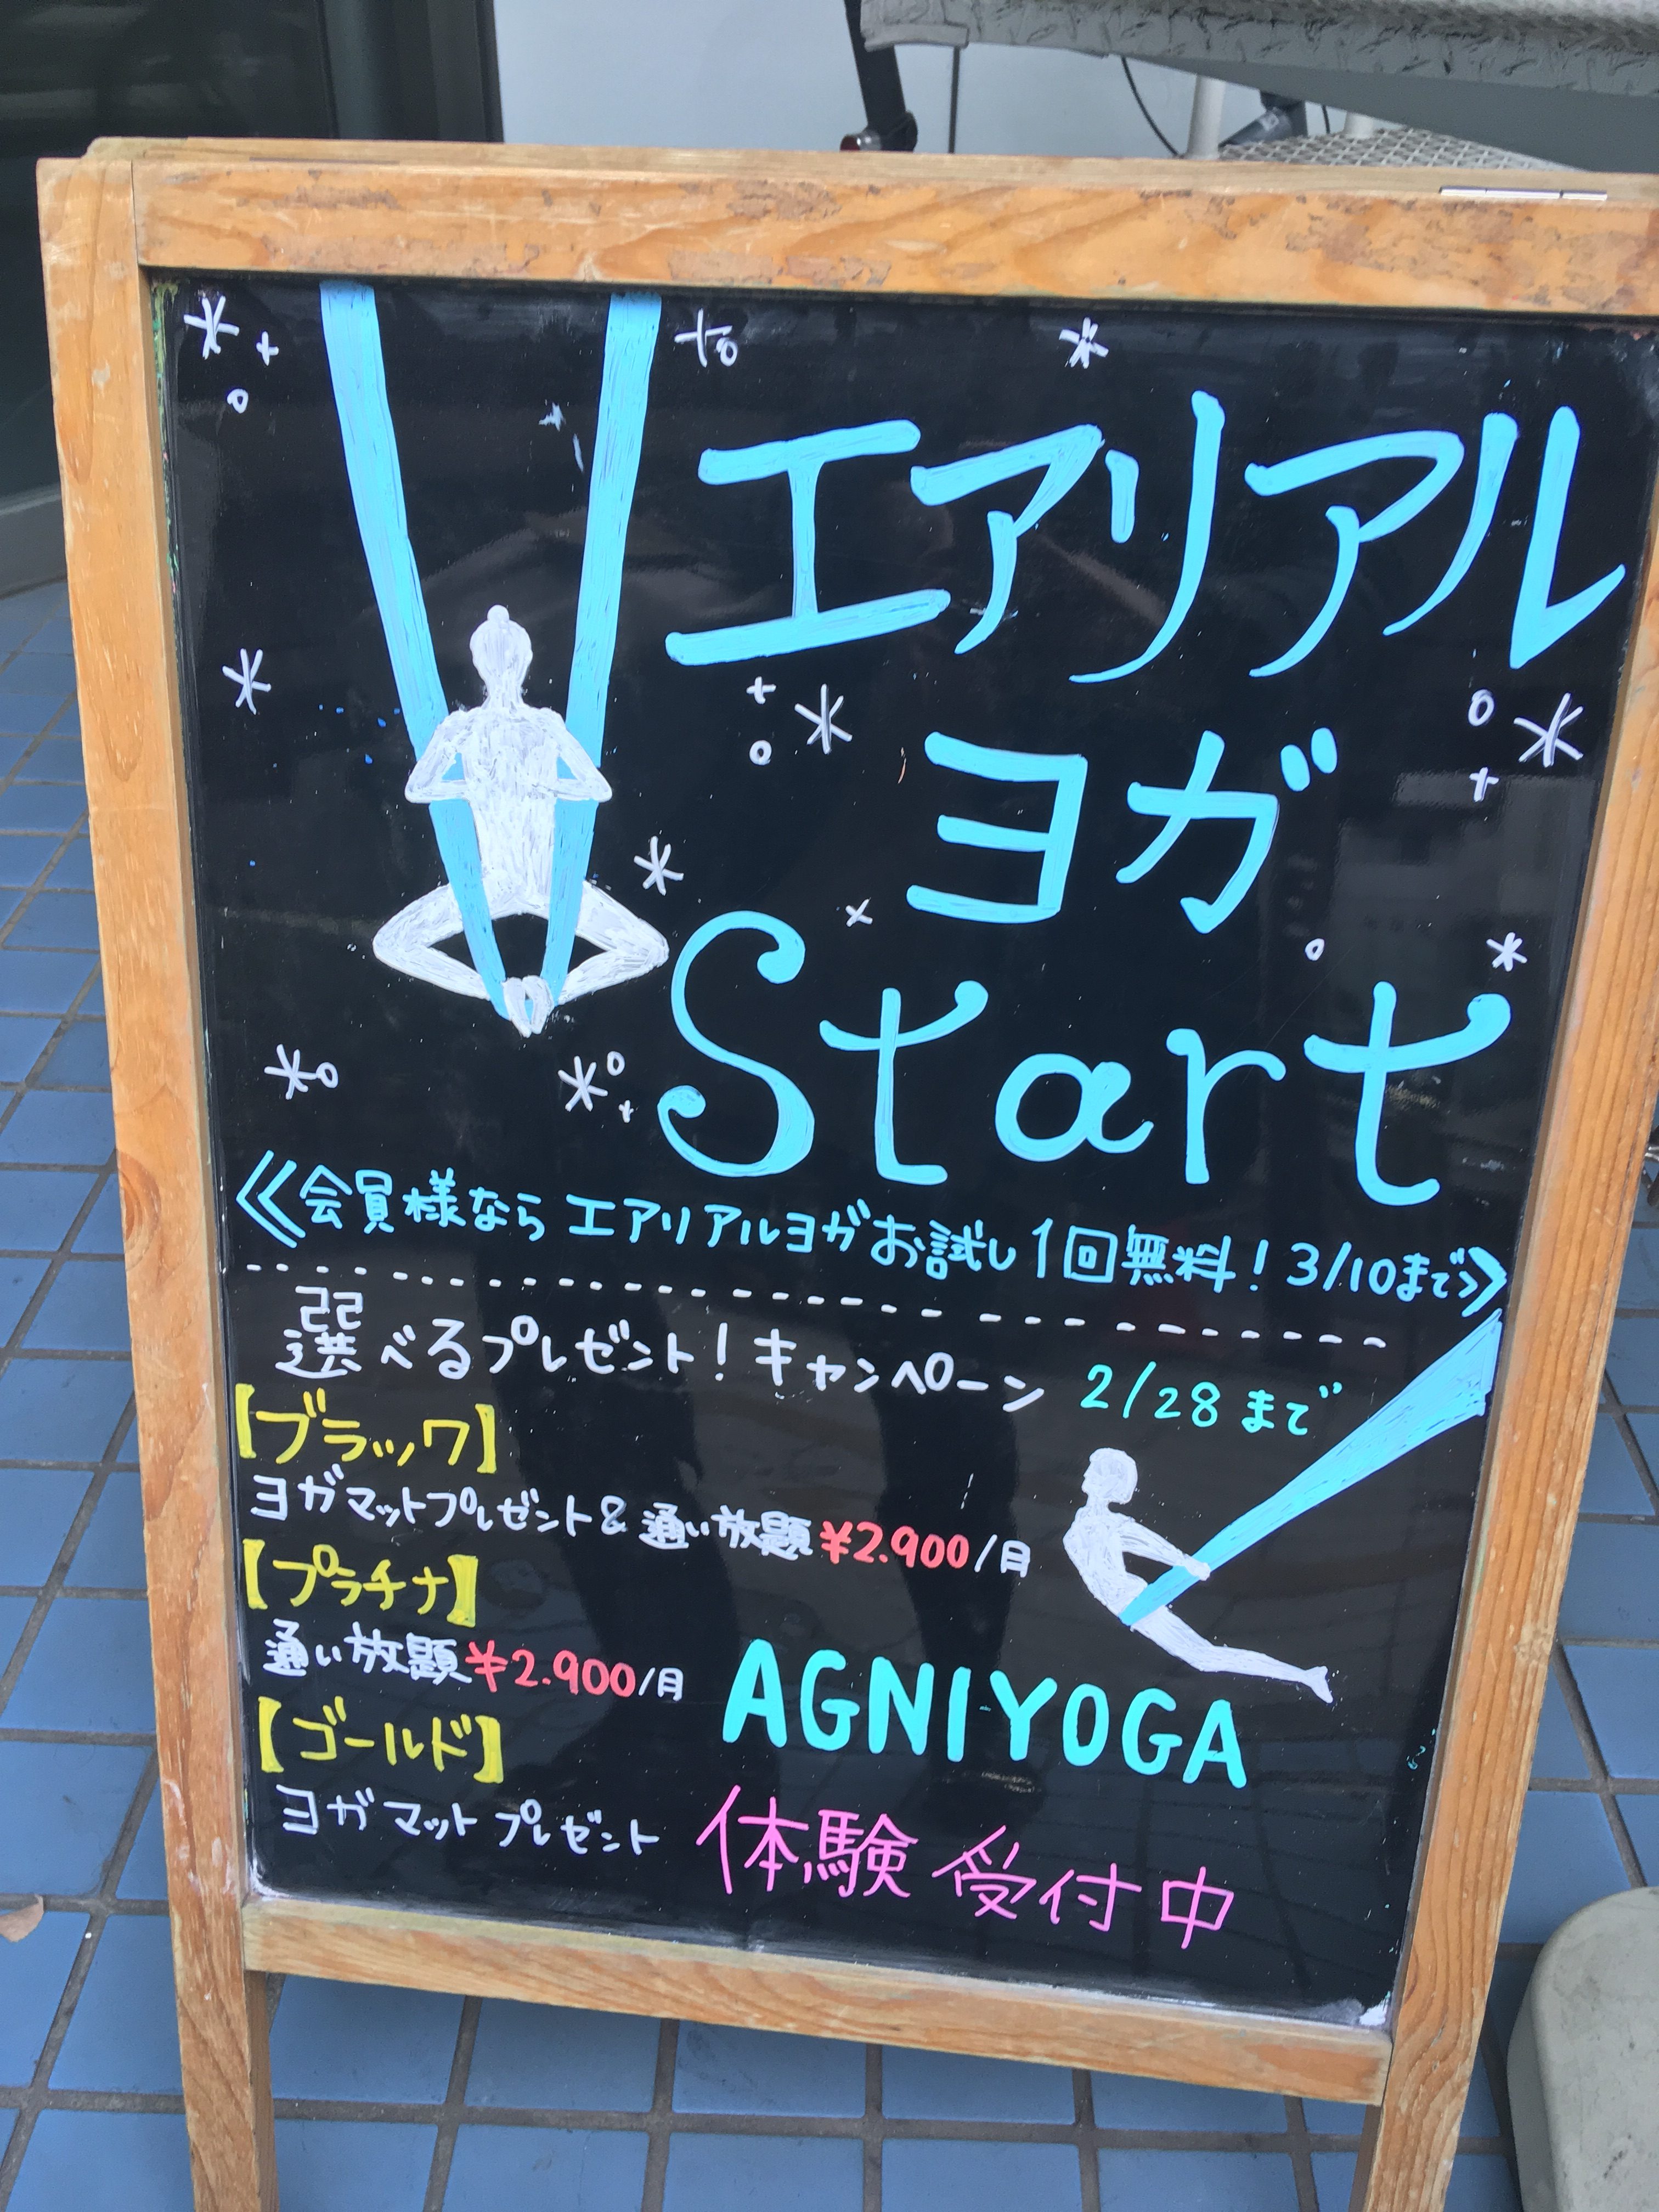 エアリアル
ヨガ
Start
《会員様なら エアリアルヨガお試し1回無料！3/10まで》
選べるプレゼント！キャンペーン 2/28まで
【ブラック】
ヨガマットプレゼント&通い放題¥2.900/月
【プラチナ】
通い放題¥2.900/月
【ゴールド】
ヨガマットプレゼント
AGNIYOGA
体験受付中